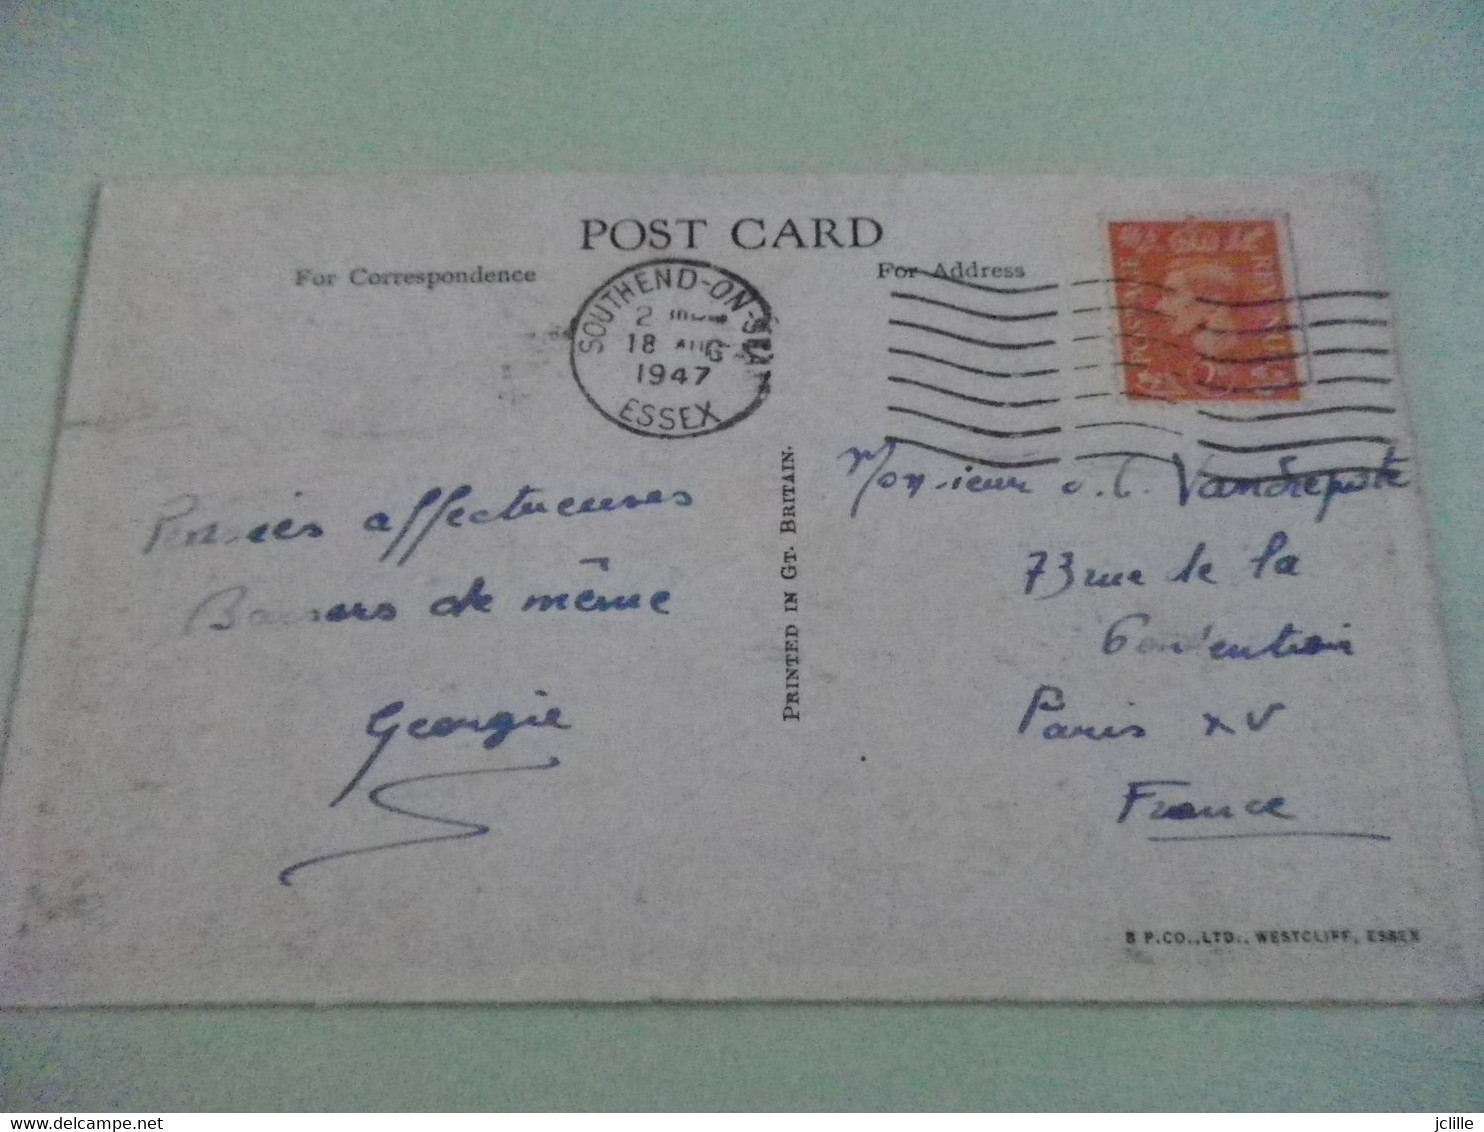 POST CARD
For Correspondence
For Address
SOUTHEND-ON-SEA
2
18 AUG
1947
ESSEX
POSTAGE REVENUE
Pensées affectueuses
Baisers de même
Georgie
PRINTED IN GT. BRITAIN.
Monsieur
73 rue de la
Convention
Paris XV
France
B P.CO.,LTD., WESTCLIFF, ESSEX
delcampe.net
jclille